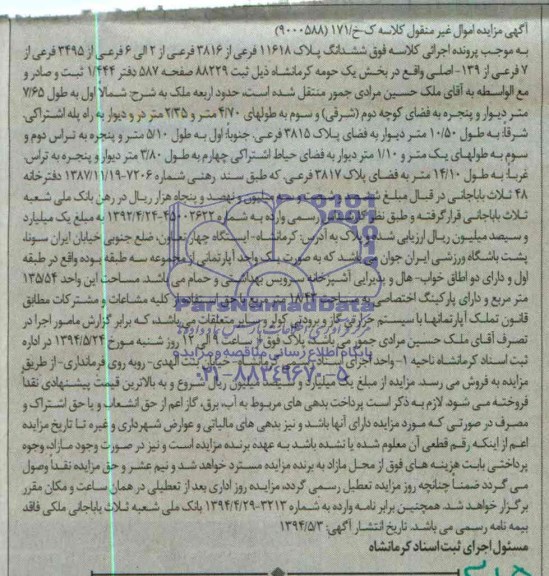 آگهی مزایده اموال غیر منقول کلاسه ک-خ/۱۷۱ (۹۰۰۰۵۸۸)
به موجب پرونده اجرائی کلاسه فوق ششدانگ پلاک ۱۱۶۱۸ فرعی از ۳۸۱۶ فرعی از ۲ الی ۶ فرعی از ۳۴۹۵ فرعی از
۷ فرعی از ۱۳۹- اصلی واقع در بخش یک حومه کرمانشاه ذیل ثبت ۸۸۲۲۹ صفحه ۵۸۷ دفتر ۱/۴۴۴ ثبت و صادر و
مع الواسطه به آقای ملک حسین مرادی جمور منتقل شده است، حدود اربعه ملک به شرح: شمالا اول به طول ۷/۶۵
متر دیوار و پنجره به فضای کوچه دوم (شرقی) و سوم به طولهای ۴/۷۰ متر و ۲/۳۵ متر در و دیوار به راه پله اشتراکی.
شرقا: به طول ۱۰/۵۰ متر دیوار به فضای پلاک ۳۸۱۵ فرعی. جنوبا: اول به طول ۵/۱۰ متر و پنجره به تراس دوم و
سوم به طولهای یک متر و ۱/۱۰ متر دیوار به فضای حیاط اشتراکی چهارم به طول ۳/۸۰ متر دیوار و پنجره به تراس.
غربا: به طول ۱۴/۱۰ متر به فضای پلاک ۳۸۱۷ فرعی. که طبق سند رهنی شماره ۷۲۰۶-۱۳۸۷/۱۱/۱۹ دفترخانه
۴۸ ثلاث باباجانی در قبال مبلغ میلیون و نهصد و پنجاه هزار ریال در رهن بانک ملی شعبه
ثلاث باباجانی قرار گرفته و طبق نظر رسمی وارده به شماره ۱۳۹۴/۴/۲۴ به مبلغ یک میلیارد
و سیصد میلیون ریال ارزیابی شده و پلاک به آدرس: کرمانشاه- ایستگاه چهار تعاون، ضلع جنوبی خیابان ایران سونا،
پشت باشگاه ورزشی ایران جوان می باشد که به صورت یک واحد آپارتمانی از مجموعه سه طبقه بوده واقع در طبقه
اول و دارای دو اطاق خواب- هال و پذیرایی آشپزخانه سرویس بهداشتی و حمام می باشد. مساحت این واحد ۱۳۵/۵۴
متر مربع و دارای پارکینگ اختصاصی به مساحت متر مربع با حق استفاده از کلیه مشاعات و مشترکات مطابق
قانون تملک آپارتمانها با سیستم حرارتی گاز و برودتی کولر و سایر متعلقات می باشد، که برابر گزارش مامور اجرا در
تصرف آقای ملک حسین مرادی جمور می باشد پلاک فوق از ساعت ۹ الی ۱۲ روز شنبه مورخ ۱۳۹۴/۵/۲۴ در اداره
ثبت اسناد کرمانشاه ناحیه ۱- واحد اجرای اسناد رسمی کرمانشاه بنت الهدی- روبه روی فرمانداری- از طریق
مزایده به فروش می رسد. مزایده از مبلغ یک میلیارد و سیصد میلیون ریال شروع و به بالاترین قیمت پیشنهادی نقدا
فروخته می شود. لازم به ذکر است پرداخت بدهی های مربوط به آب، برق، گاز اعم از حق انشعاب و یا حق اشتراک و
مصرف در صورتی که مورد مزایده دارای آنها باشد و نیز بدهی های مالیاتی و عوارض شهرداری و غیره تا تاریخ مزایده
اعم از اینکه رقم قطعی آن معلوم شده یا نشده باشد به عهده برنده مزایده است و نیز در صورت وجود مازاد، وجوه
پرداختی بابت هزینه های فوق از محل مازاد به برنده مزایده مسترد خواهد شد و نیم عشر و حق مزایده نقدا وصول
می گردد ضمنا چنانچه روز مزایده تعطیل رسمی گردد، مزایده روز اداری بعد از تعطیلی در همان ساعت و مکان مقرر
برگزار خواهد شد. همچنین برابر نامه وارده به شماره ۳۲۱۳-۱۳۹۴/۴/۲۹ بانک ملی شعبه ثلاث باباجانی ملکی فاقد
بیمه نامه رسمی می باشد. تاریخ انتشار آگهی: ۱۳۹۴/۵/۳
مسئول اجرای ثبت اسناد کرمانشاه
ParsNamadData
پایگاه اطلاع رسانی مناقصه و مزایده
۰۲۱-۸۸۳۴۹۶۷۰-۵